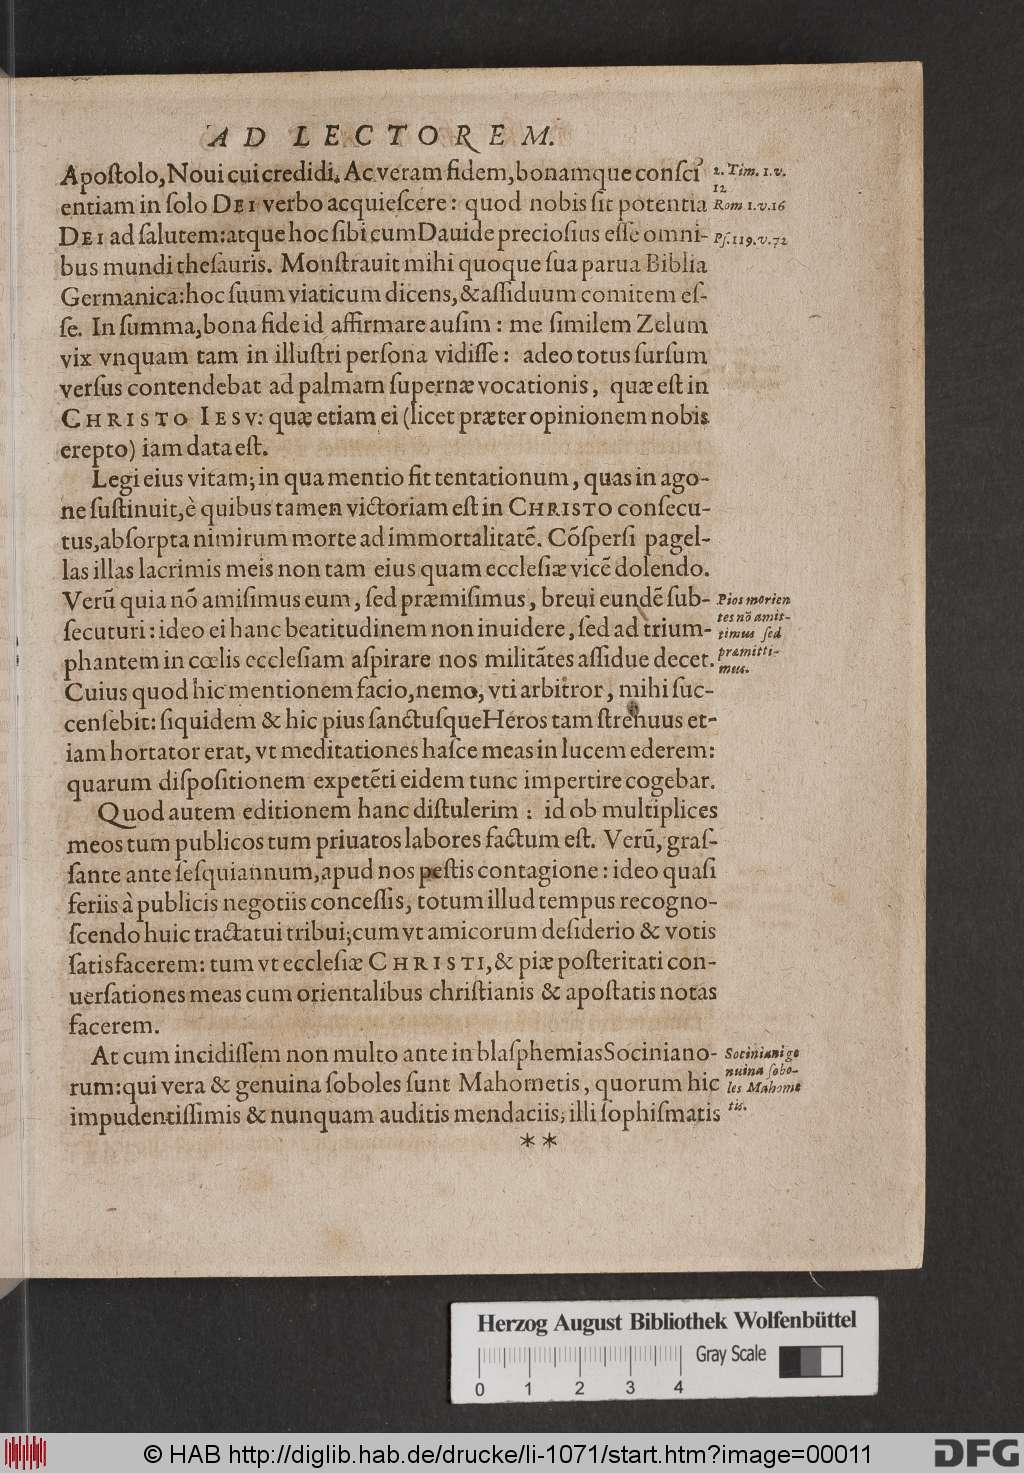 AD LECTOREM.
Apoſtolo, Noui cui credidi. Ac veram fidem, bonamque conſci
entiam in ſolo DEI verbo acquieſcere: quod nobis ſit potentia
DEI ad ſalutem: atque hoc ſibi cum Dauide precioſius eſſe omni-
bus mundi theſauris. Monſtrauit mihi quoque ſua parua Biblia
Germanica: hoc ſuum viaticum dicens, & aſſiduum comitem eſ-
ſe. In ſumma, bona fide id affirmare auſim: me ſimilem Zelum
vix vnquam tam in illuſtri perſona vidiſſe: adeo totus ſurſum
verſus contendebat ad palmam ſupernæ vocationis, quæ eſt in
CHRISTO IESV: quæ etiam ei (licet præter opinionem nobis
erepto) iam data eſt.
Legi eius vitam; in qua mentio fit tentationum, quas in ago-
ne ſuſtinuit, è quibus tamen victoriam eſt in CHRISTO conſecu-
tus, abſorpta nimirum morte ad immortalitatē. Cōſperſi pagel-
las illas lacrimis meis non tam eius quam eccleſiæ vicē dolendo.
Verū quia nō amiſimus eum, ſed præmiſimus, breui eundē ſub-
ſecuturi: ideo ei hanc beatitudinem non inuidere, ſed ad trium-
phantem in cœlis eccleſiam aſpirare nos militātes aſſidue decet.
Cuius quod hic mentionem facio, nemo, vti arbitror, mihi ſuc-
cenſebit: ſiquidem & hic pius ſanctuſque Heros tam ſtrenuus et-
iam hortator erat, vt meditationes haſce meas in lucem ederem:
quarum diſpoſitionem expetēti eidem tunc impertire cogebar.
Quod autem editionem hanc diſtulerim: id ob multiplices
meos tum publicos tum priuatos labores factum eſt. Verū, graſ-
ſante ante ſeſquiannum, apud nos peſtis contagione: ideo quaſi
feriis à publicis negotiis conceſſis, totum illud tempus recogno-
ſcendo huic tractatui tribui; cum vt amicorum deſiderio & votis
ſatisfacerem: tum vt eccleſiæ CHRISTI, & piæ poſteritati con-
uerſationes meas cum orientalibus chriſtianis & apoſtatis notas
facerem.
At cum incidiſſem non multo ante in blaſphemias Sociniano-
rum: qui vera & genuina ſoboles ſunt Mahometis, quorum hic
impudentiſſimis & nunquam auditis mendaciis, illi ſophiſmatis
**
2. Tim. 1. v.
12
Rom 1. v. 16
Pſ. 119. v. 72
Pios morien
tes nō amit-
timus ſed
præmitti-
mus.
Sociniani ge
nuina ſobo-
les Mahome
tis.
Herzog August Bibliothek Wolfenbüttel
Gray Scale
0 1 2 3 4
© HAB http://diglib.hab.de/drucke/li-1071/start.htm?image=00011
DFG